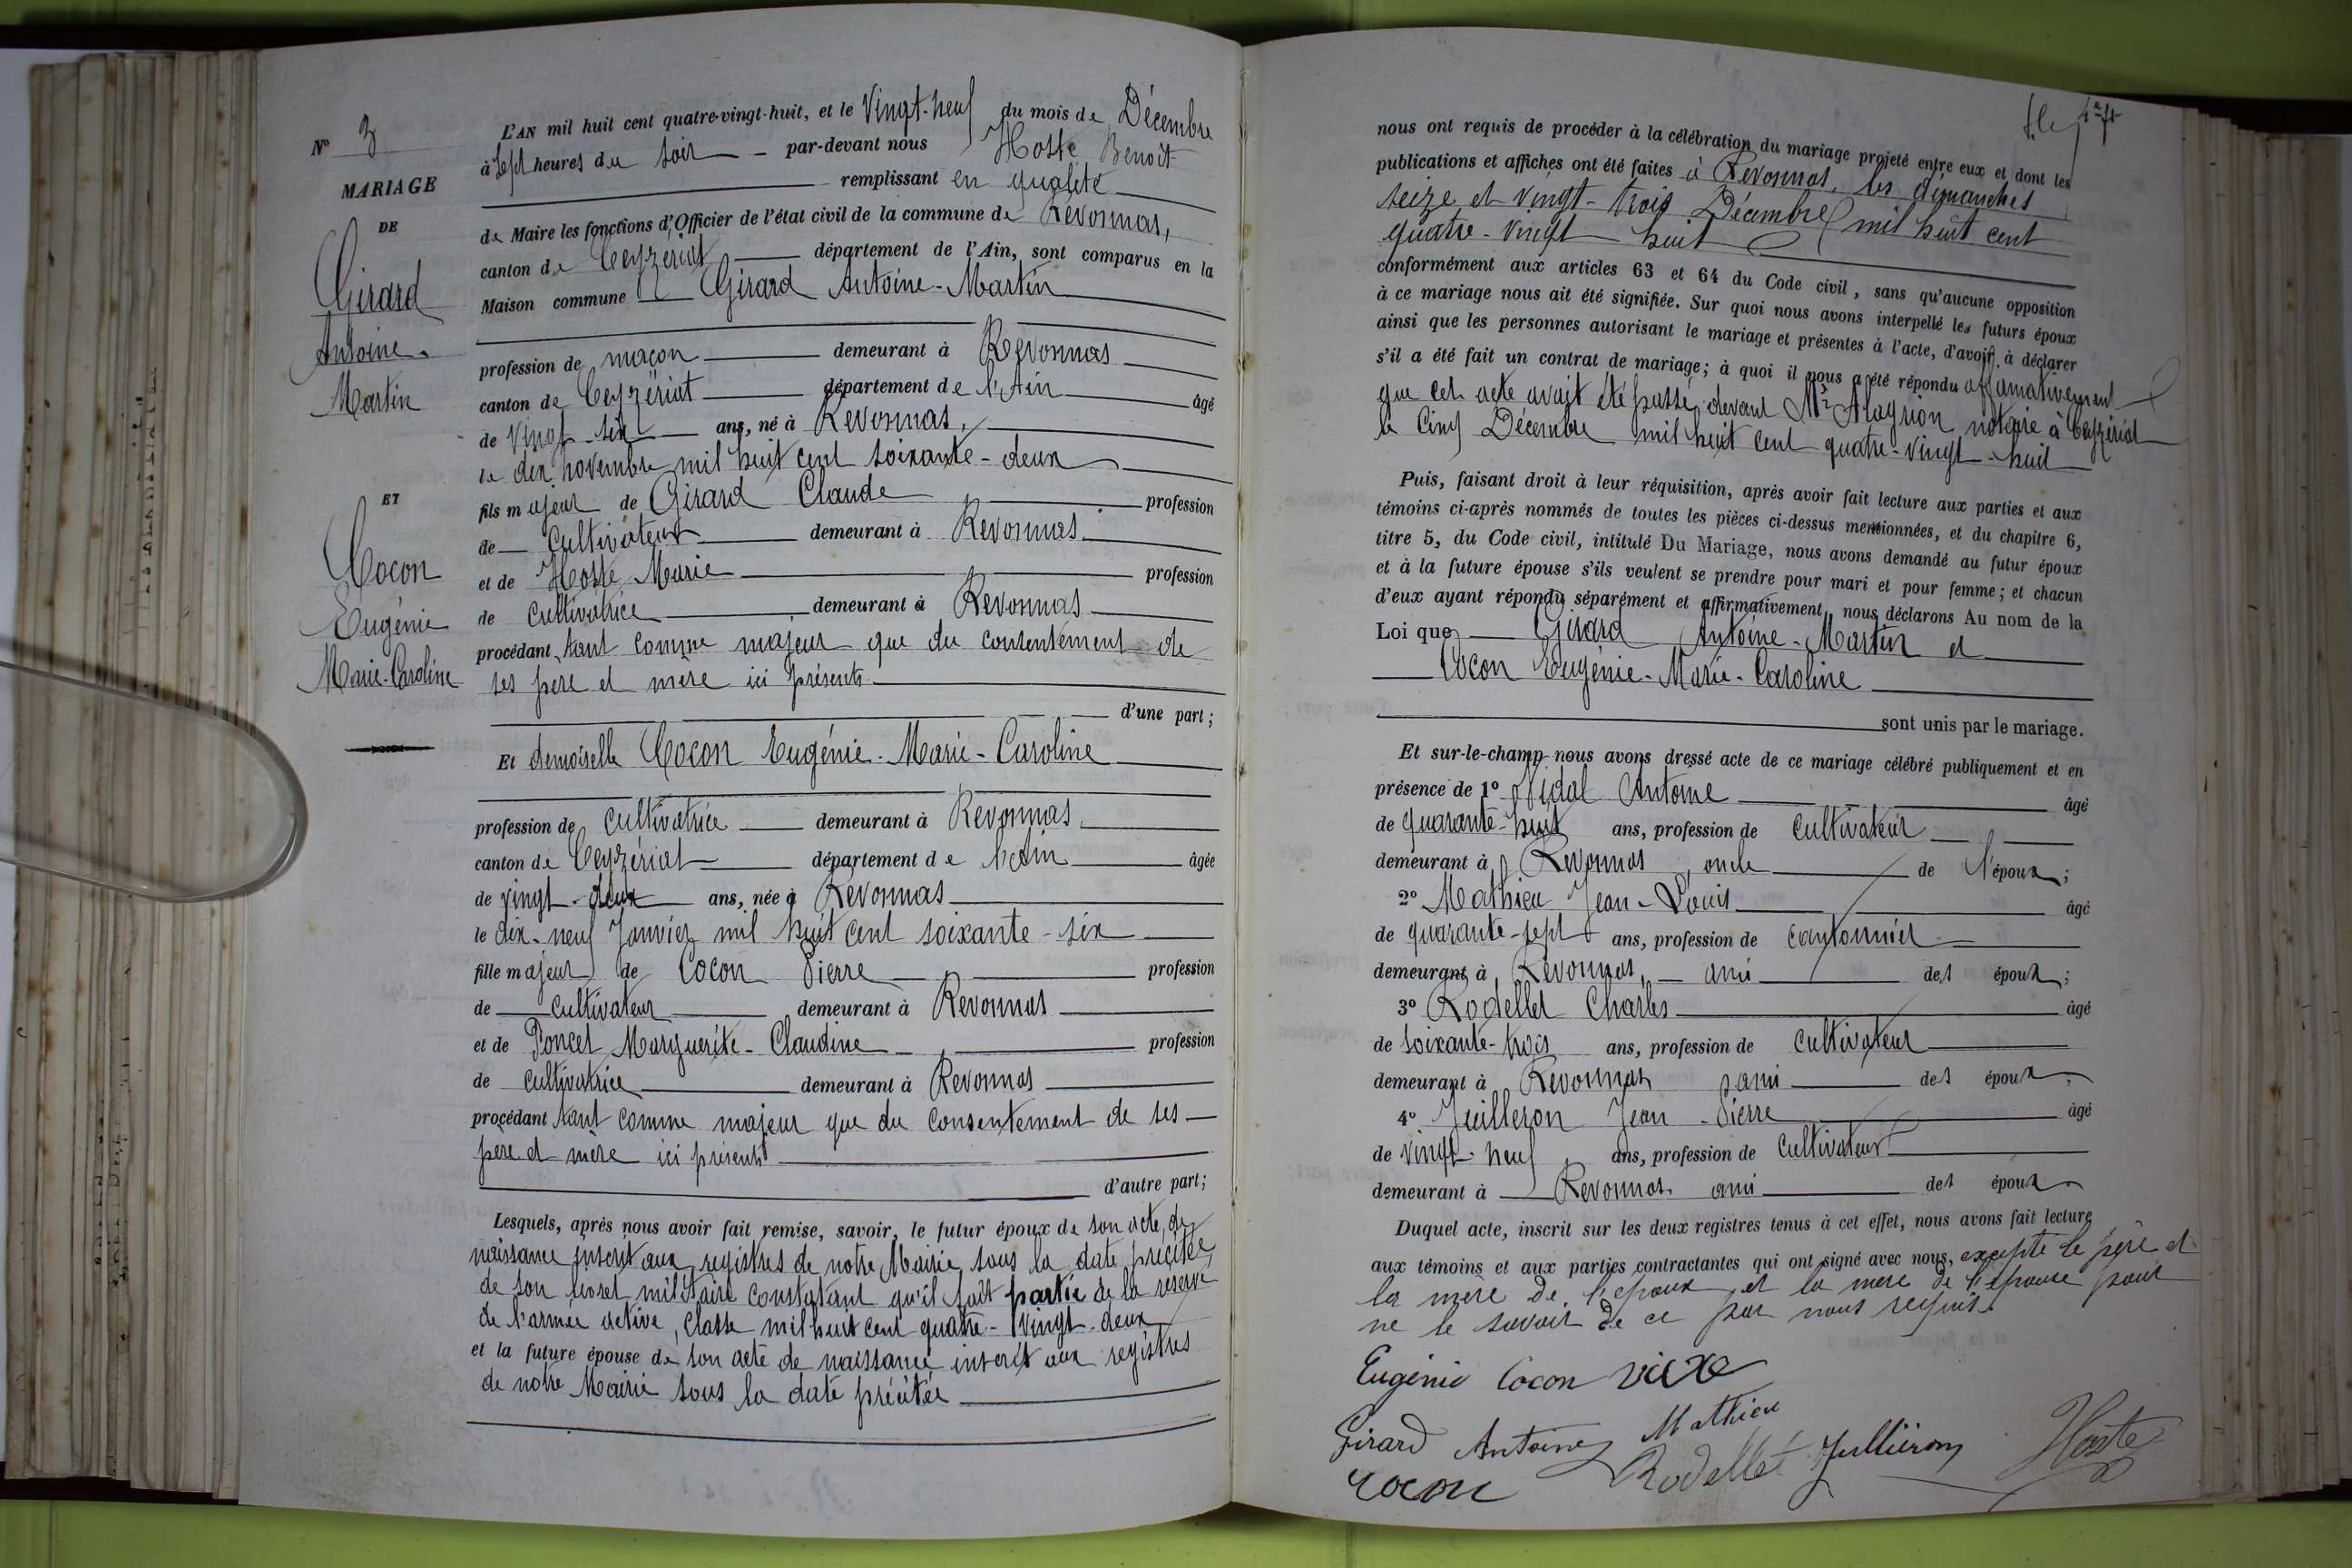 N° 3
MARIAGE
DE
Girard
Antoine-
Martin
ET
Cocon
Eugénie
Marie-Caroline
L'AN mil huit cent quatre-vingt-huit, et le Vingt-neuf du mois de Décembre
à Sept heures du soir par-devant nous Hoste Benoit
remplissant en qualité
de Maire les fonctions d'Officier de l'état civil de la commune de Revonnas,
canton de Ceyzériat département de l'Ain, sont comparus en la
Maison commune Girard Antoine-Martin
profession de maçon demeurant à Revonnas
canton de Ceyzériat département de l'Ain âgé
de Vingt-six ans, né à Revonnas,
le dix novembre mil huit cent soixante-deux
fils majeur de Girard Claude profession
de Cultivateur demeurant à Revonnas
et de Hoste Marie profession
de cultivatrice demeurant à Revonnas
procédant tant comme majeur que du consentement de
ses père et mère ici présents
d'une part;
Et demoiselle Cocon Eugénie-Marie-Caroline
profession de cultivatrice demeurant à Revonnas
canton de Ceyzériat département de l'Ain âgée
de vingt-deux ans, née à Revonnas
le dix-neuf Janvier mil huit cent soixante-six
fille majeur de Cocon Pierre profession
de cultivateur demeurant à Revonnas
et de Poncet Marguerite-Claudine profession
de cultivatrice demeurant à Revonnas
procédant tant comme majeur que du consentement de ses
père et mère ici présents
d'autre part;
Lesquels, après nous avoir fait remise, savoir, le futur époux de son acte de
naissance inscrit aux registres de notre Mairie sous la date précitée
de son livret militaire constatant qu'il fait partie de la réserve
de l'armée active, classe mil huit cent quatre-Vingt-deux
et la future épouse de son acte de naissance inscrit aux registres
de notre Mairie sous la date précitée
nous ont requis de procéder à la célébration du mariage projeté entre eux et dont les
publications et affiches ont été faites à Revonnas, les dimanches
seize et vingt-trois Décembre mil huit cent
quatre-vingt huit
conformément aux articles 63 et 64 du Code civil, sans qu'aucune opposition
à ce mariage nous ait été signifiée. Sur quoi nous avons interpellé les futurs époux
ainsi que les personnes autorisant le mariage et présentes à l'acte, d'avoir à déclarer
s'il a été fait un contrat de mariage; à quoi il nous a été répondu affirmativement
que cet acte avait été passé devant Me notaire à Ceyzériat
le Cinq Décembre mil huit cent quatre-vingt-huit
Puis, faisant droit à leur réquisition, après avoir fait lecture aux parties et aux
témoins ci-après nommés de toutes les pièces ci-dessus mentionnées, et du chapitre 6,
titre 5, du Code civil, intitulé Du Mariage, nous avons demandé au futur époux
et à la future épouse s'ils veulent se prendre pour mari et pour femme; et chacun
d'eux ayant répondu séparément et affirmativement, nous déclarons Au nom de la
Loi que Girard Antoine-Martin et
Cocon Eugénie-Marie-Caroline
sont unis par le mariage.
Et sur-le-champ nous avons dressé acte de ce mariage célébré publiquement et en
présence de 1° Antoine âgé
de quarante-huit ans, profession de cultivateur
demeurant à Revonnas, oncle de l'époux;
2° Mathieu Jean-Louis âgé
de quarante-sept ans, profession de cantonnier
demeurant à Revonnas, ami des époux;
3° Rodellet Charles âgé
de soixante-trois ans, profession de cultivateur
demeurant à Revonnas ami des époux;
4° Juilleron Jean-Pierre âgé
de vingt-neuf ans, profession de cultivateur
demeurant à Revonnas ami des époux
Duquel acte, inscrit sur les deux registres tenus à cet effet, nous avons fait lecture
aux témoins et aux parties contractantes qui ont signé avec nous, excepté le père et
la mère de l'époux et la mère de l'épouse pour
ne le savoir de ce par nous requis.
Eugénie Cocon
Girard Antoine Mathieu
Cocon Rodellet Jullieron Hoste